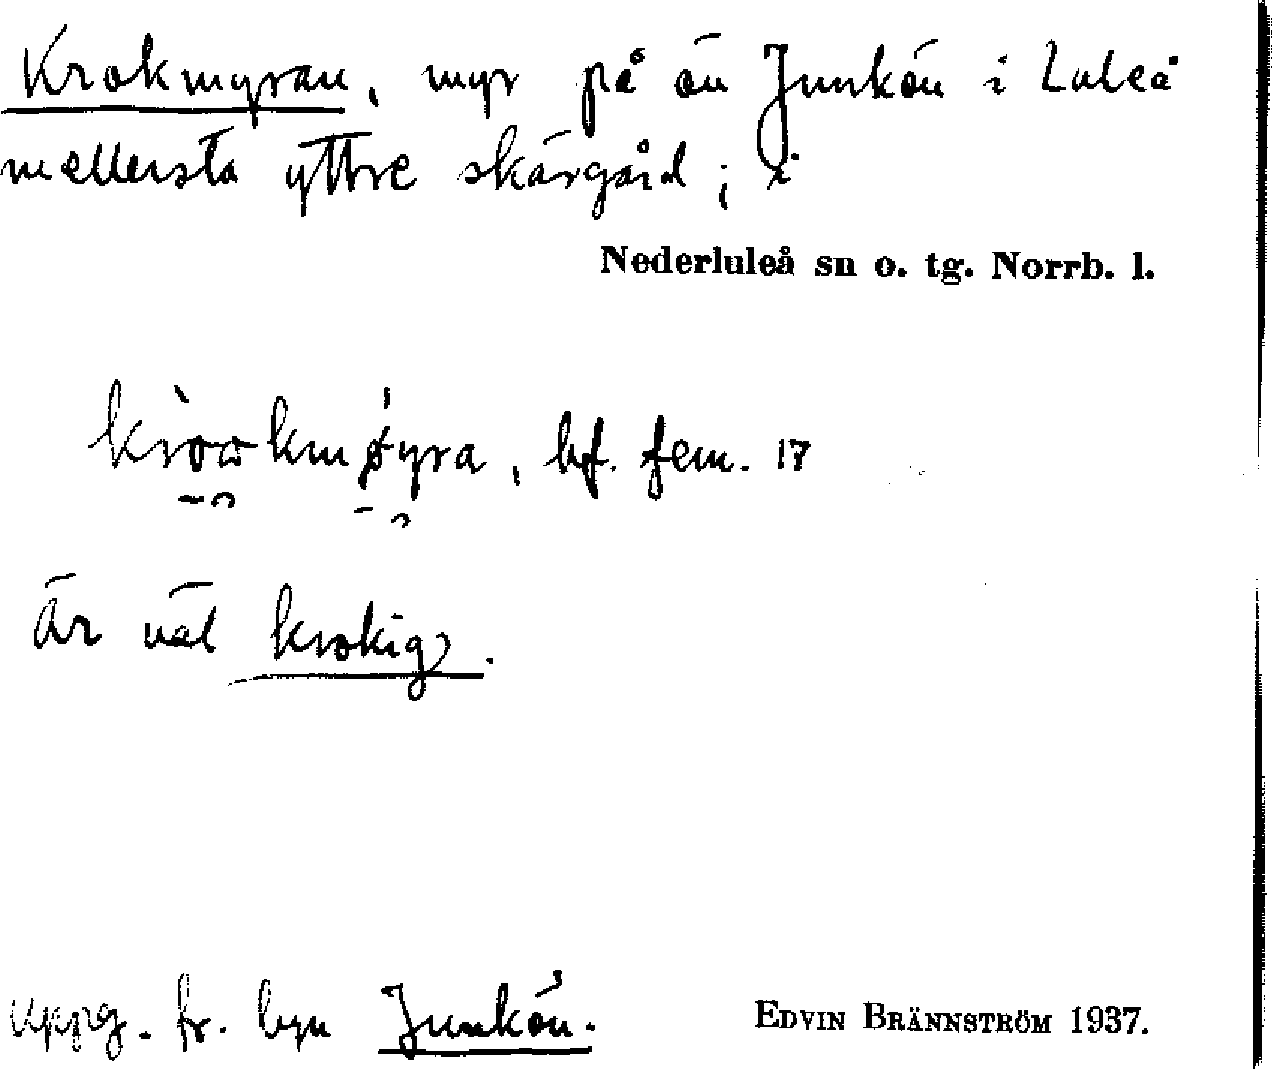 Krokmyran, myr på ön Junkön i Luleå
mellersta yttre skärgård; i
Nederluleå sn o. tg. Norrb. l.
bf. fem. 17
är väl krokig.
uppg. fr. byn Junkön.
EDVIN BRÄNNSTRÖM 1937.